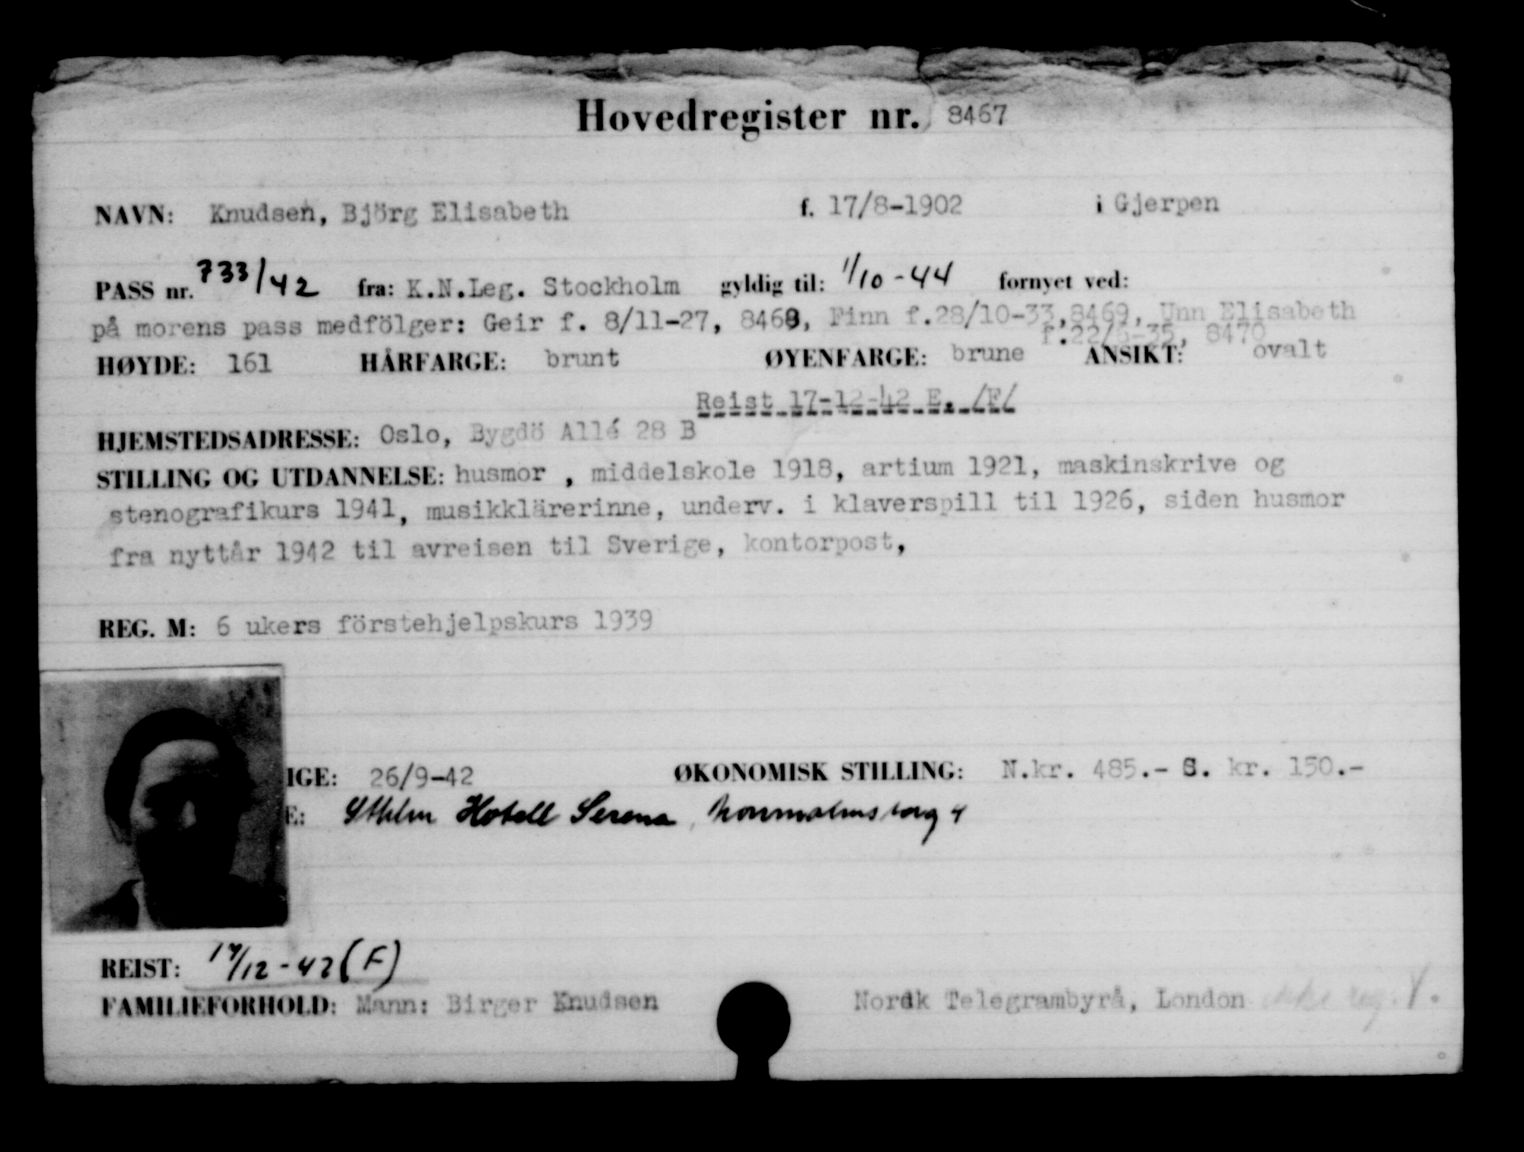 Hovedregister nr. 8467
NAVN: Knudsen, Björg Elisabeth f. 17/8-1902 i Gjerpen
PASS nr. 733/42 fra: K.N.Leg. Stockholm gyldig til: 1/10-44 fornyet ved:
på morens pass medfölger: Geir f. 8/11-27, 8468, Finn f.28/10-33,8469, Unn Elisabeth
f.22/6-35, 8470
HØYDE: 161 HÅRFARGE: brunt ØYENFARGE: brune ANSIKT: ovalt
Reist 17-12-42 E. /F/
HJEMSTEDSADRESSE: Oslo, Bygdö Allé 28 B
STILLING OG UTDANNELSE: husmor , middelskole 1918, artium 1921, maskinskrive og
stenografikurs 1941, musikklärerinne, underv. i klaverspill til 1926, siden husmor
fra nyttår 1942 til avreisen til Sverige, kontorpost,
REG. M: 6 ukers förstehjelpskurs 1939
IGE: 26/9-42 ØKONOMISK STILLING: N.kr. 485.- S. kr. 150.-
E: Sthlm Hotell Serena, Norrmalmstorg 4
REIST: 17/12-42 (F)
FAMILIEFORHOLD: Mann: Birger Knudsen Nordk Telegrambyrå, London ikke reg.